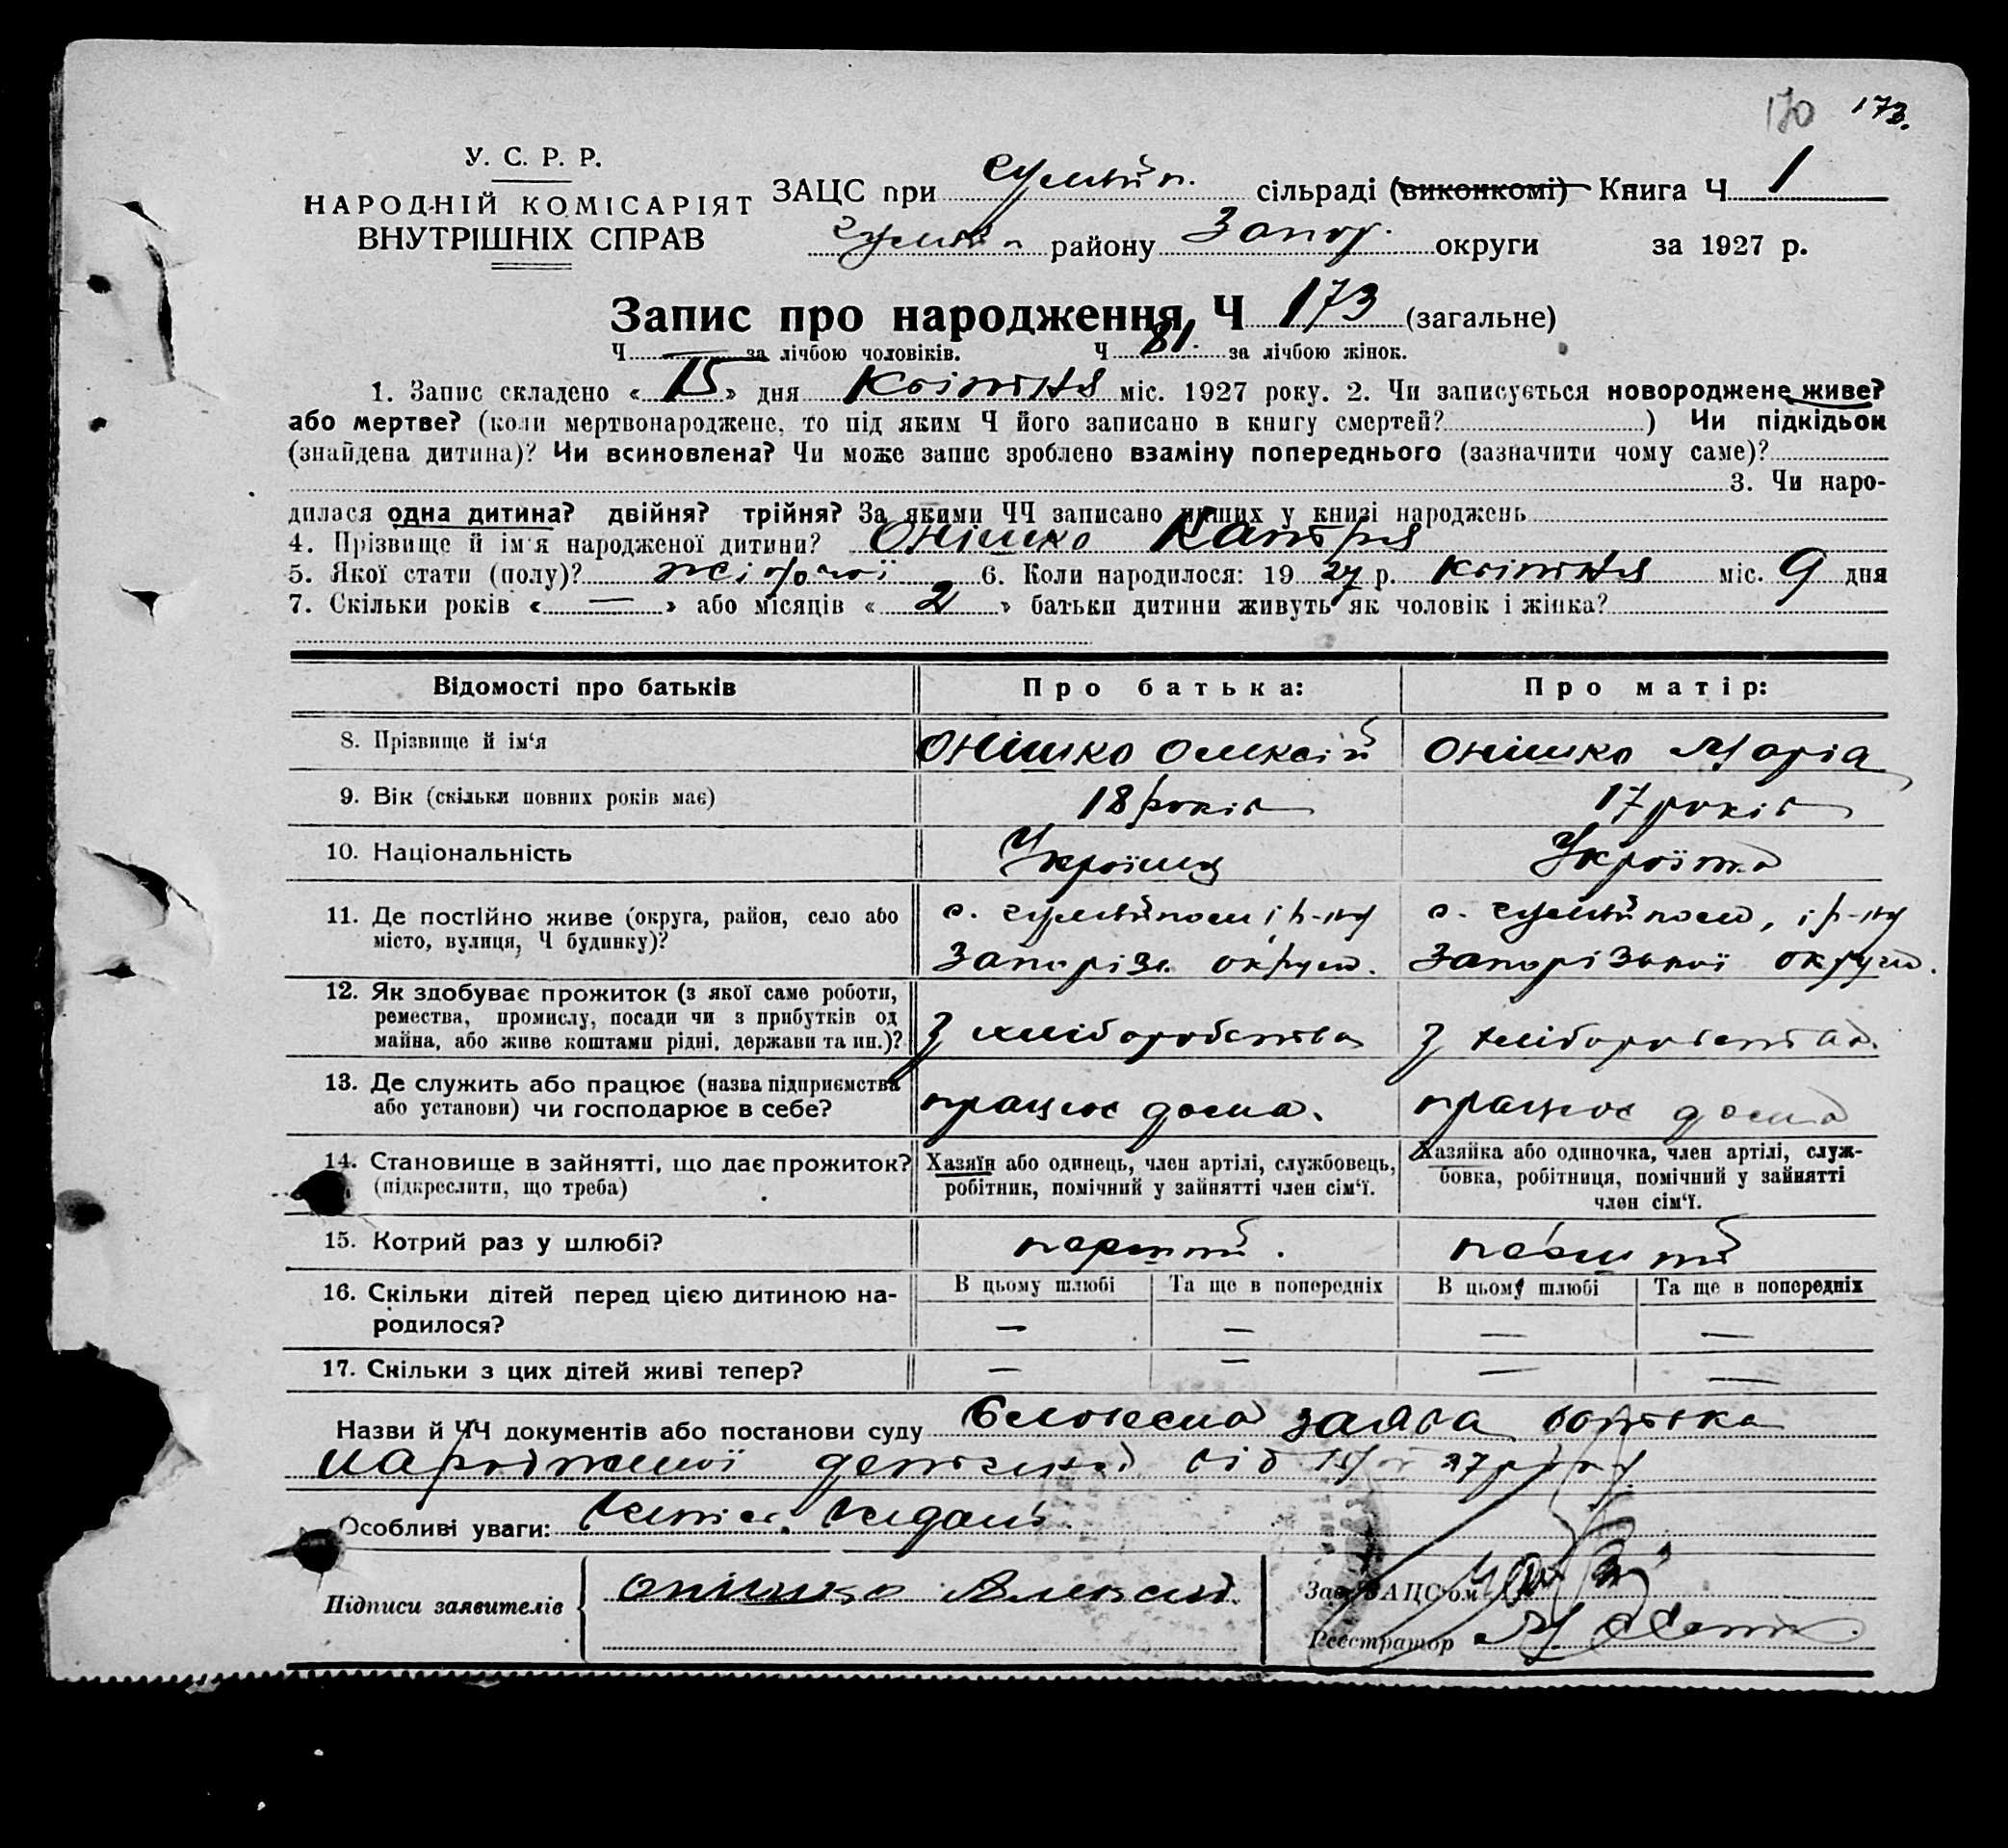 170 173.
У. С. Р. Р.
НАРОДНІЙ КОМІСАРІЯТ
ВНУТРІШНІХ СПРАВ
ЗАЦС при Гуляйп. сільраді (виконкомі) Книга Ч 1
Гуляйп району Запор. округи за 1927 р.
Запис про народження Ч 173 (загальне)
Ч — за лічбою чоловіків. Ч 81. за лічбою жінок.
1. Запис складено «15» дня Квітня міс. 1927 року. 2. Чи записується новороджене живе?
або мертве? (коли мертвонароджене, то під яким Ч його записано в книгу смертей? ) Чи підкідьок
(знайдена дитина)? Чи всиновлена? Чи може запис зроблено взаміну попереднього (зазначити чому саме)?
3. Чи наро-
дилася одна дитина? двійня? трійня? За якими ЧЧ записано инших у книзі народжень
4. Прізвище й ім'я народженої дитини? Онішко Катря
5. Якої стати (полу)? жіночої 6. Коли народилося: 1927 р. квітня міс. 9 дня
7. Скільки років « — » або місяців « 2 » батьки дитини живуть як чоловік і жінка?
Відомості про батьків Про батька: Про матір:
8. Прізвище й ім'я Онішко Олексій Онішко Марія
9. Вік (скільки повних років має) 18 років 17 років
10. Національність Українці Українка
11. Де постійно живе (округа, район, село або с. Гуляйполе, і р-ну с. Гуляйполе, і р-ну
місто, вулиця, Ч будинку)? Запоріз. округи. Запорізької округи.
12. Як здобуває прожиток (з якої саме роботи,
ремества, промислу, посади чи з прибутків од
майна, або живе коштами рідні, держави та ин.)? З хліборобства З хліборобства.
13. Де служить або працює (назва підприємства
або установи) чи господарює в себе? працює дома. працює дома
14. Становище в зайнятті, що дає прожиток? Хазяїн або одинець, член артілі, службовець, Хазяйка або одиночка, член артілі, служ-
(підкреслити, що треба) робітник, помічний у зайнятті член сім'ї. бовка, робітниця, помічний у зайнятті
член сім'ї.
15. Котрий раз у шлюбі? перший. перший
16. Скільки дітей перед цією дитиною на- В цьому шлюбі Та ще в попередніх В цьому шлюбі Та ще в попередніх
родилося? — — — —
17. Скільки з цих дітей живі тепер? — — — —
Назви й ЧЧ документів або постанови суду Словесна заява батька
народженої дитини від 15/IV 27 року
Особливі уваги:
Підписи заявителів Онішко Алексей
Зав. ЗАЦС'ом
Реєстратор